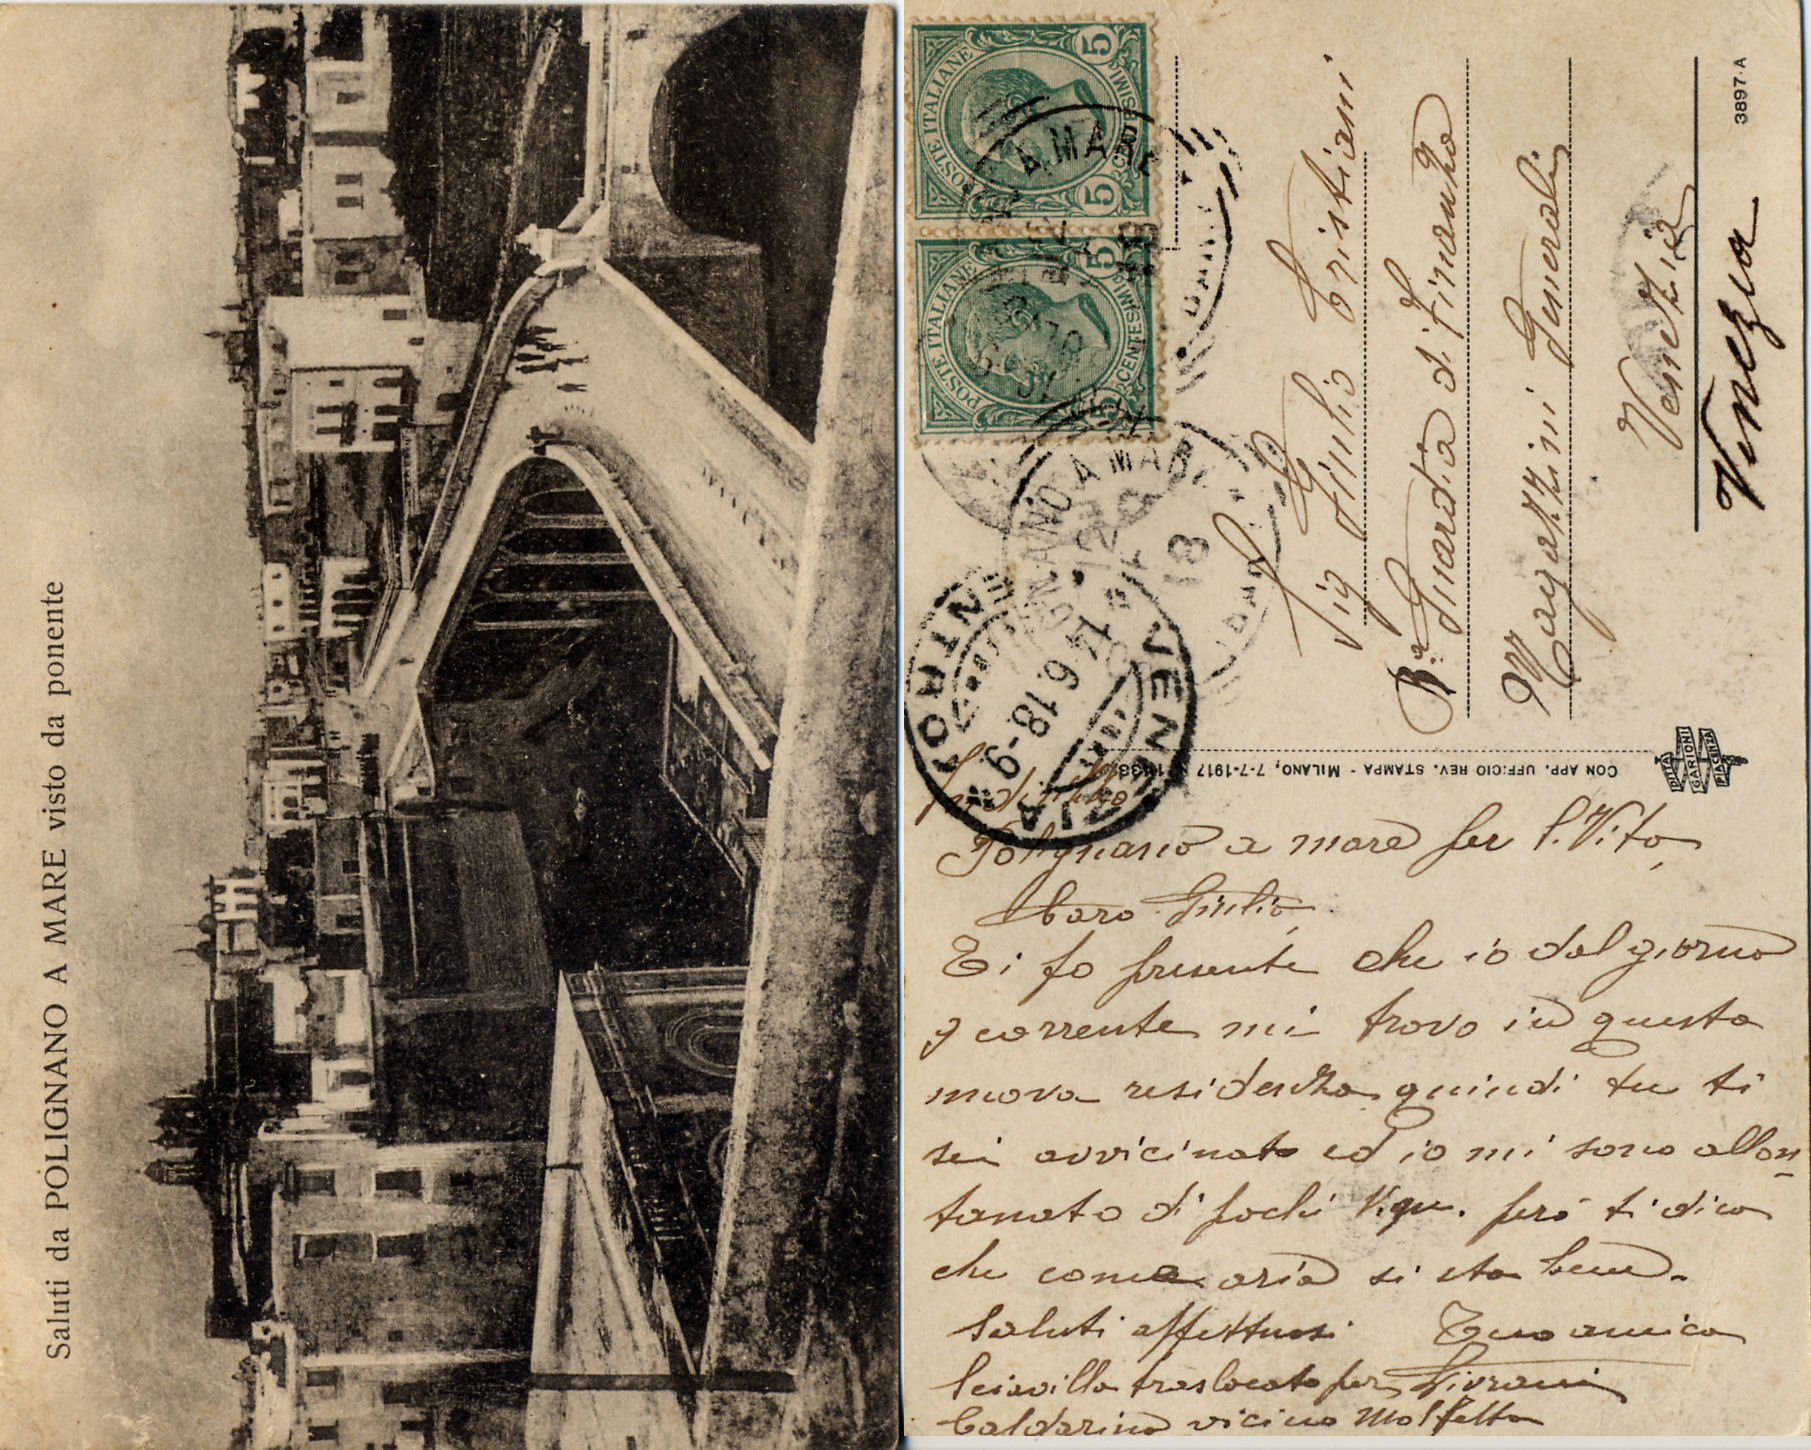 Saluti da POLIGNANO A MARE visto da ponente
POSTE ITALIANE
5 CENTESIMI 5
POSTE ITALIANE
5 CENTESIMI 5
POLIGNANO A MARE
BARI
VENEZIA CENTRO
14 6 18-9
Sig Giulio Cristiani
Bª Guardia di Finanza
Magazzini Generali
Venezia
Venezia
3897-A
CON APP. UFFICIO REV. STAMPA - MILANO, 7-7-1917
DITTA
GARIONI
PIACENZA
Indirizzo
Polignano a mare per S. Vito
Caro Giulio,
Ti fo presente che io dal giorno
9 corrente mi trovo in questa
nuova residenza quindi tu ti
sei avvicinato ed io mi sono allon-
tanato di pochi però ti dico
che come aria si sta bene.
Saluti affettuosi Tuo amico
traslocato per
vicino Molfetta